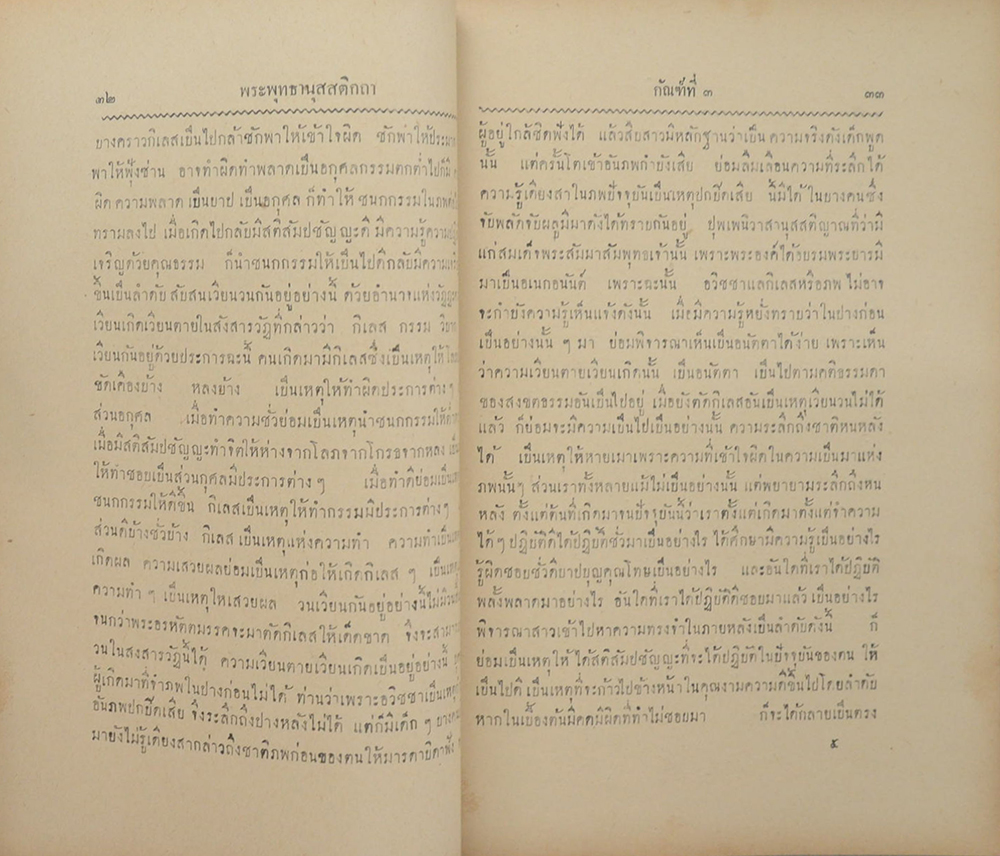 ๓๒
พระพุทธานุสสติกถา
ยางคราวกิเลสเป็นไปกล้าชักพาให้เข้าใจผิด ชักพาให้ประมาท
พาให้ฟุ้งซ่าน อาจทำผิดทำพลาดเป็นอกุศลกรรมตกต่ำไปก็มี
ผิด ความพลาด เป็นบาป เป็นอกุศล ก็ทำให้ ชนกกรรมในภพต่อไป
ทรามลงไป เมื่อเกิดไปกลับมีสติสัมปชัญญะดี มีความรู้ความ
เจริญด้วยคุณธรรม ก็นำชนกกรรมให้เป็นไปดีกลับมีความเจริญ
ขึ้นเป็นลำดับ สับสนเวียนวนกันอยู่อย่างนี้ ด้วยอำนาจแห่งวัฏฏ
เวียนเกิดเวียนตายในสังสารวัฏที่กล่าวว่า กิเลส กรรม วิบาก
เวียนกันอยู่ด้วยประการฉะนี้ คนเกิดมามีกิเลสซึ่งเป็นเหตุให้
ขัดเคืองบ้าง หลงบ้าง เป็นเหตุให้ทำผิดประการต่างๆ
ส่วนอกุศล เมื่อทำความชั่วย่อมเป็นเหตุนำชนกกรรมให้
เมื่อมีสติสัมปชัญญะทำจิตให้ห่างจากโลภจากโกรธจากหลง เป็น
ให้ทำชอบเป็นส่วนกุศลมีประการต่าง ๆ เมื่อทำดีย่อมเป็นเหตุ
ชนกกรรมให้ดีขึ้น กิเลสเป็นเหตุให้ทำกรรมมีประการต่าง ๆ
ส่วนดีบ้างชั่วบ้าง กิเลส เป็นเหตุแห่งความทำ ความทำเป็นเหตุ
เกิดผล ความเสวยผลย่อมเป็นเหตุก่อให้เกิดกิเลส ๆ เป็นเหตุ
ความทำ ๆ เป็นเหตุให้เสวยผล วนเวียนกันอยู่อย่างนี้ไม่มี
จนกว่าพระอรหัตตมรรคจะมาตัดกิเลสให้เด็ดขาด จึงจะสามารถ
วนในสงสารวัฏนี้ได้ ความเวียนตายเวียนเกิดเป็นอยู่อย่างนี้
ผู้เกิดมาที่จำภพในปางก่อนไม่ได้ ท่านว่าเพราะอวิชชาเป็นเหตุ
อันภพปกปิดเสีย จึงระลึกถึงปางหลังไม่ได้ แต่ก็มีเด็ก ๆ บางคน
มายังไม่รู้เดียงสากล่าวถึงชาติภพก่อนของตนให้มารดาบิดาฟัง
กัณฑ์ที่ ๓
๓๓
ผู้อยู่ใกล้ชิดฟังได้ แล้วสืบสาวมีหลักฐานว่าเป็น ความจริงดังเด็กพูด
นั้น แต่ครั้นโตเข้าอันภพกำบังเสีย ย่อมลืมเลือนความที่ระลึกได้
ความรู้เดียงสาในภพปัจจุบันเป็นเหตุปกปิดเสีย นี้มีได้ในบางคนซึ่ง
จับพลัดจับผลูมีมาดังได้ทราบกันอยู่ ปุพเพนิวาสานุสสติญาณที่ว่ามี
แก่สมเด็จพระสัมมาสัมพุทธเจ้านั้น เพราะพระองค์ได้อบรมพระบารมี
มาเป็นอเนกอนันต์ เพราะฉะนั้น อวิชชาแลกิเลสหรือภพ ไม่อาจ
จะกำบังความรู้เห็นแจ้งดังนั้น เมื่อมีความรู้หยั่งทราบว่าในปางก่อน
เป็นอย่างนั้น ๆ มา ย่อมพิจารณาเห็นเป็นอนัตตาได้ง่าย เพราะเห็น
ว่าความเวียนตายเวียนเกิดนั้น เป็นอนัตตา เป็นไปตามคติธรรมดา
ของสงขตธรรมอันเป็นไปอยู่ เมื่อยังตัดกิเลสอันเป็นเหตุเวียนวนไม่ได้
แล้ว ก็ย่อมจะมีความเป็นไปเป็นอย่างนั้น ความระลึกถึงชาติหนหลัง
ได้ เป็นเหตุให้หายเมาเพราะความที่เข้าใจผิดในความเป็นมาแห่ง
ภพนั้นๆ ส่วนเราทั้งหลายแม้ไม่เป็นอย่างนั้น แต่พยายามระลึกถึงหน
หลัง ตั้งแต่ต้นที่เกิดมาจนปัจจุบันนี้ว่าเราตั้งแต่เกิดมาตั้งแต่จำความ
ได้ ๆ ปฏิบัติดีได้ปฏิบัติชั่วมาเป็นอย่างไร ได้ศึกษามีความรู้เป็นอย่างไร
รู้ผิดชอบชั่วดีบาปบุญคุณโทษเป็นอย่างไร และอันใดที่เราได้ปฏิบัติ
พลั้งพลาดมาอย่างไร อันใดที่เราได้ปฏิบัติดีชอบมาแล้ว เป็นอย่างไร
พิจารณาสาวเข้าไปหาความทรงจำในภายหลังเป็นลำดับดังนี้ ก็
ย่อมเป็นเหตุให้ ได้สติสัมปชัญญะที่จะได้ปฏิบัติในปัจจุบันของตน ให้
เป็นไปดี เป็นเหตุที่จะก้าวไปข้างหน้าในคุณงามความดีขึ้นไปโดยลำดับ
หากในเบื้องต้นมีคตมีผิดที่ทำไม่ชอบมา ก็จะได้กลายเป็นตรง
๕